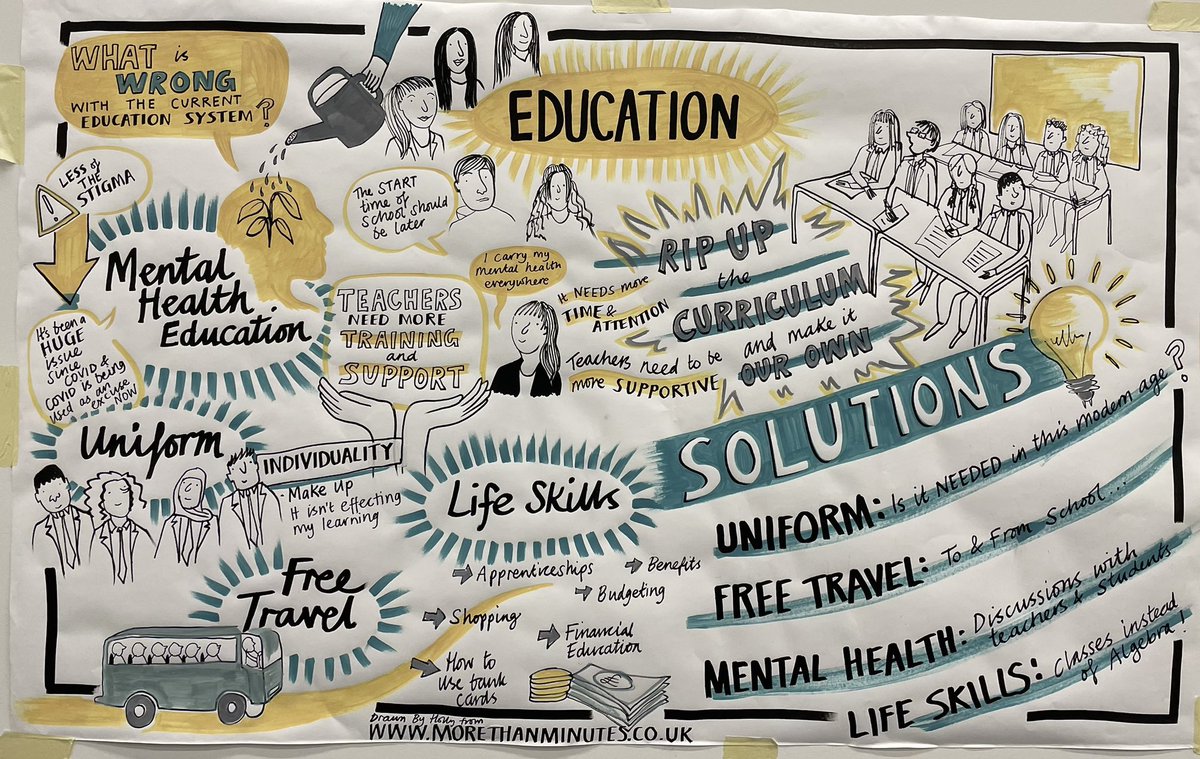 WHAT is
WRONG
WITH THE CURRENT
EDUCATION SYSTEM?
EDUCATION
LESS of
THE
STIGMA
!
Mental
Health
Education
It's been a
HUGE
issue
since
COVID &
COVID is being
used as an
excuse
NOW
The START
time of
school should
be later
TEACHERS
NEED MORE
TRAINING
and
SUPPORT
I carry my
mental health
everywhere
IT NEEDS more
TIME &
ATTENTION
Teachers need to be
more SUPPORTIVE
RIP UP
the
CURRICULUM
and make it
OUR OWN
Uniform
INDIVIDUALITY
- Make Up
It isn't effecting
my learning
Free
Travel
Life Skills
Apprenticeships
Benefits
Budgeting
Shopping
Financial
Education
How to
use bank
cards
£
SOLUTIONS
UNIFORM: Is it NEEDED in this modern age?
FREE TRAVEL: To & From School...
MENTAL HEALTH: Discussions with
teachers & Students
LIFE SKILLS: Classes instead
of Algebra!
Drawn By from
WWW.MORETHANMINUTES.CO.UK